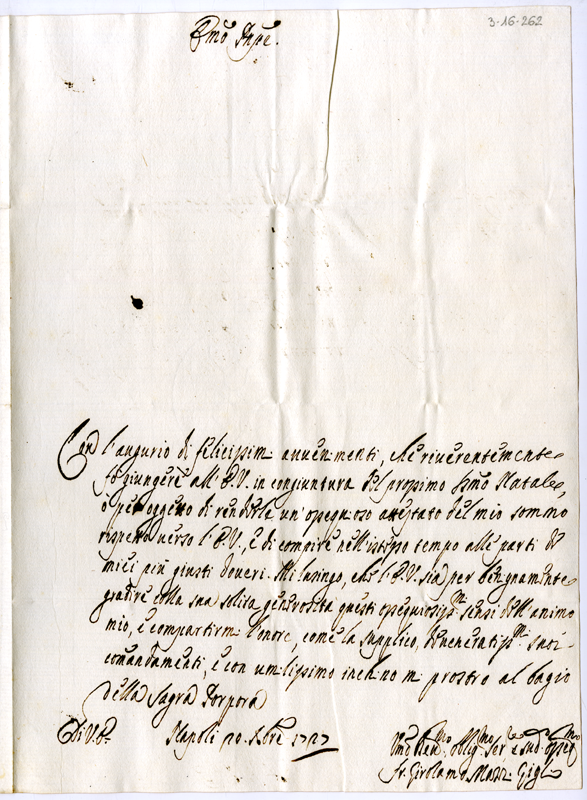 3-16-262
Emo Prpe.
Con l'augurio di felicissimi avvenimenti, che riverentemente
fo giungere all'E.V. in congiuntura del prossimo Smo Natale,
ò per oggetto di renderle un'ossequioso attestato del mio sommo
rispetto verso l'E.V., e di compire nell'istesso tempo alle parti de
miei più giusti doveri. Mi lusingo, che l'E.V. sia per benignamente
gradire colla sua solita generosità questi ossequiosissmi sensi dell'animo
mio, e compartirmi l'onore, come la supplico, de veneratissmi suoi
comandamenti, e con umilissimo inchino mi prostro al bagio
della Sagra Porpora
Di V.E. Napoli 20. Xbre 1727
Umo Oblig. Ser.
Fr. Girolamo Giglio